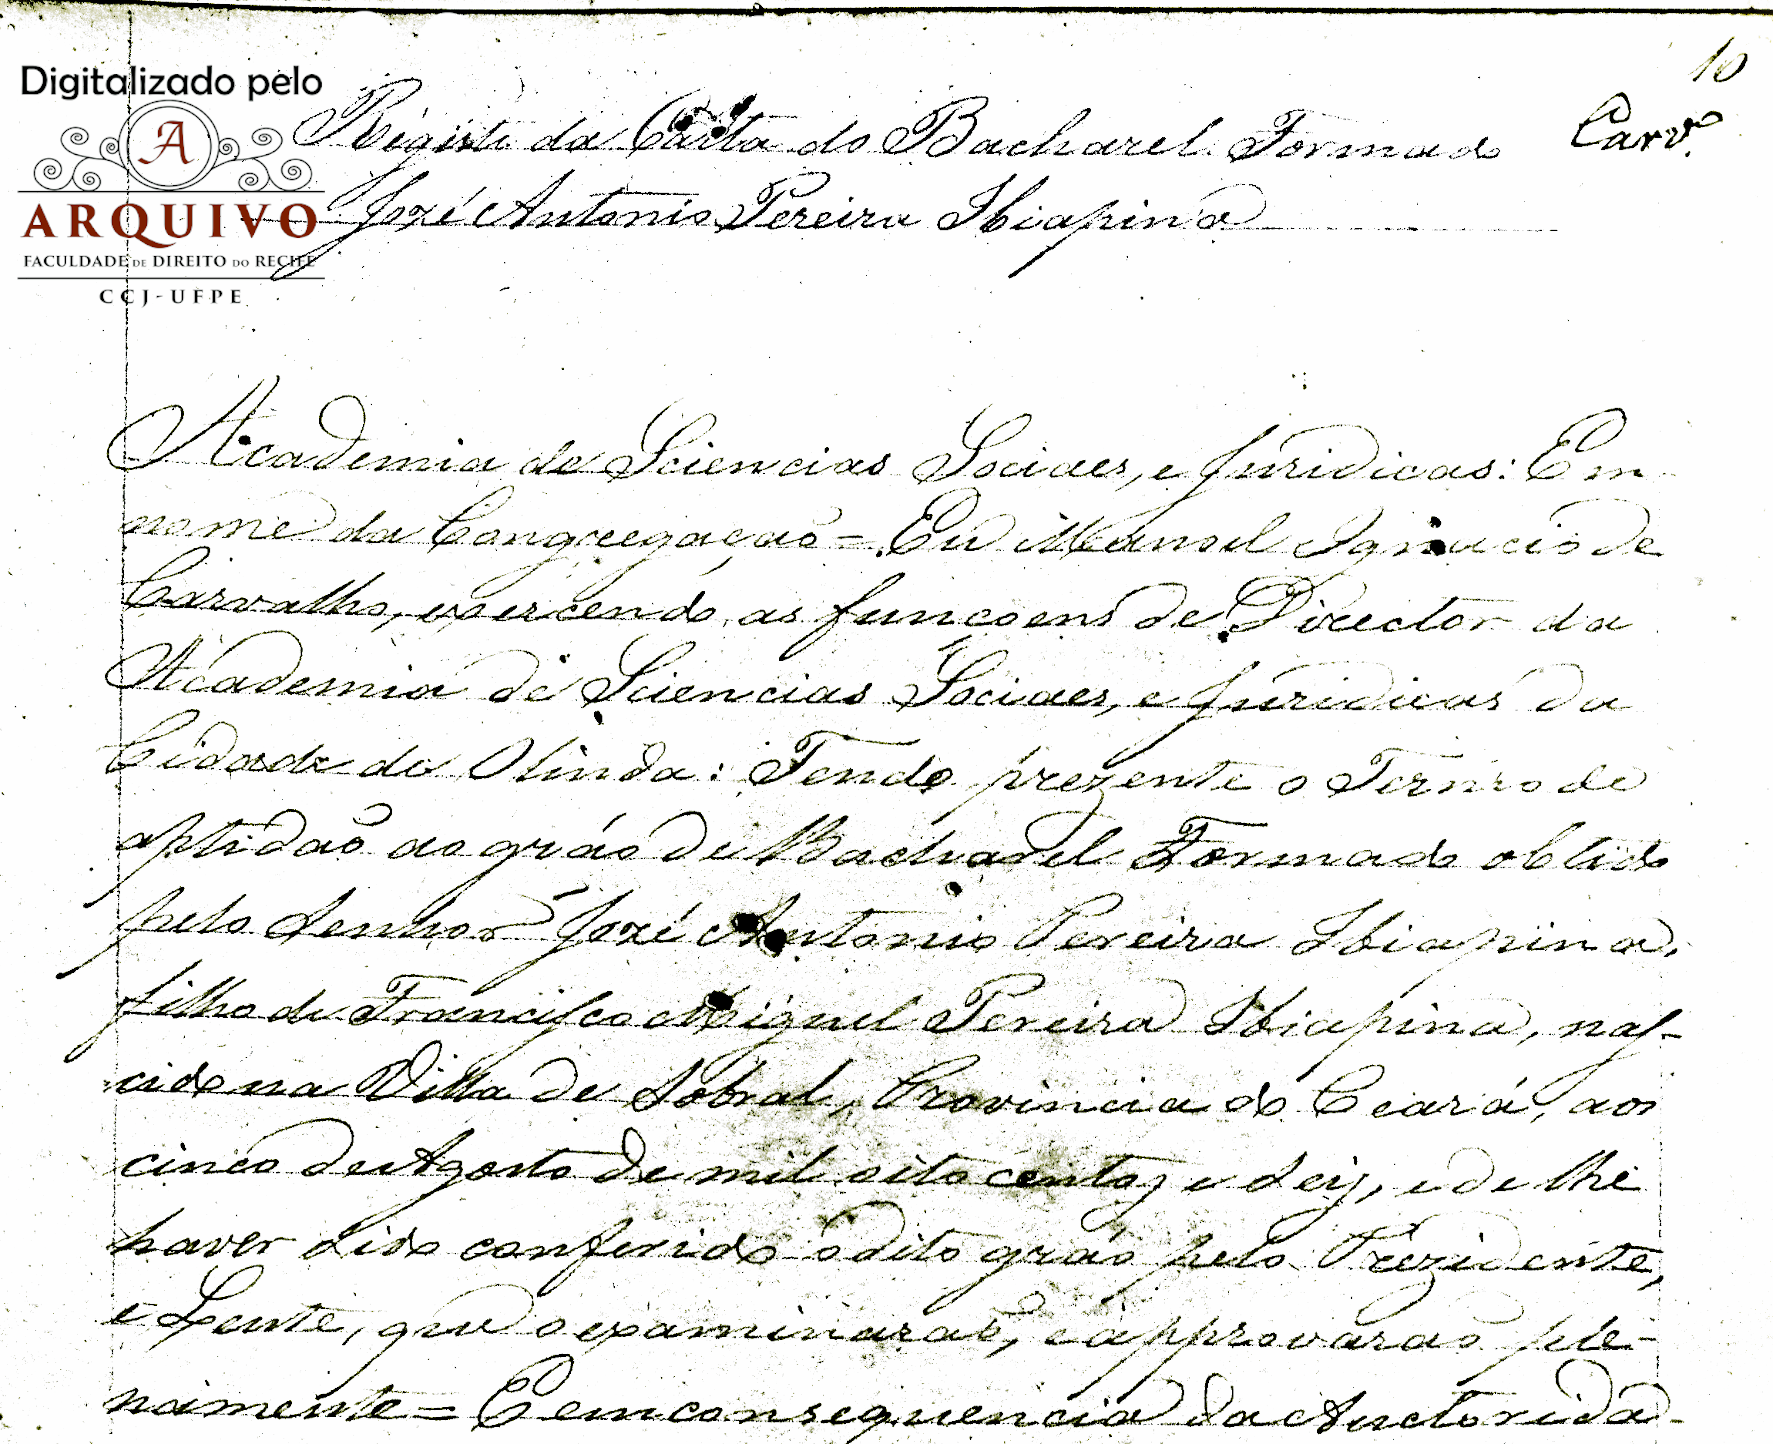 10
Carv.º
Digitalizado pelo
A
ARQUIVO
FACULDADE DE DIREITO DO RECIFE
CCJ-UFPE
Registo da Carta do Bacharel Formado
Jozé Antonio Pereira Ibiapina
Academia de Sciencias Sociaes, e Juridicas: Em
nome da Congregação = Eu Manoel Ignacio de
Carvalho, exercendo as funcoens de Director da
Academia de Sciencias Sociaes, e Juridicas da
Cidade de Olinda: Tendo prezente o Termo de
aptidaõ ao gráo de Bacharel Formado obtido
pelo Senhor Jozé Antonio Pereira Ibiapina,
filho de Francisco Miguel Pereira Ibiapina, nas-
cido na Villa de Sobral, Provincia do Ceará, aos
cinco de Agosto de mil oito centos e seis, e de lhe
haver sido conferido o dito gráo pelo Prezidente,
e Lente, que o examinaraõ, e approvaraõ ple-
namente = E em consequencia da Auctorida-